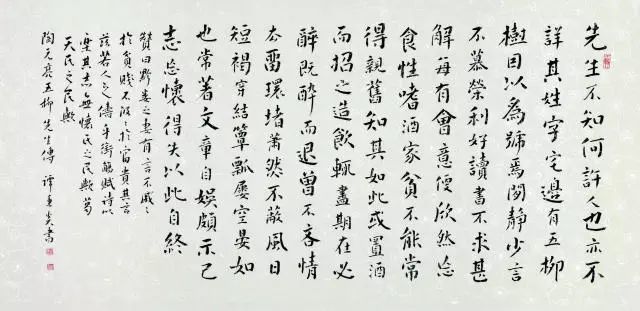 先生不知何許人也亦不
詳其姓字宅邊有五柳
樹因以為號焉閑靜少言
不慕榮利好讀書不求甚
解每有會意便欣然忘
食性嗜酒家貧不能常
得親舊知其如此或置酒
而招之造飲輒盡期在必
醉既醉而退曾不吝情
去留環堵蕭然不蔽風日
短褐穿結簞瓢屢空晏如
也常著文章自娛頗示己
志忘懷得失以此自終
贊曰黔婁之妻有言不戚〻
於貧賤不汲〻於富貴其言
茲若人之儔乎銜觴賦詩以
樂其志無懷氏之民歟葛
天氏之民歟
陶元亮五柳先生傳 譚 書